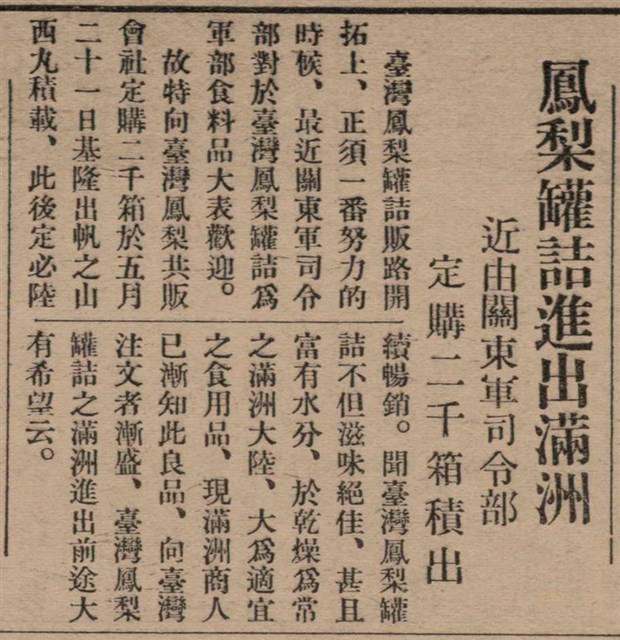 鳳梨罐詰進出滿洲
近由關東軍司令部
定購二千箱積出
臺灣鳳梨罐詰販路開
拓上、正須一番努力的
時候、最近關東軍司令
部對於臺灣鳳梨罐詰爲
軍部食料品大表歡迎。
故特向臺灣鳳梨共販
會社定購二千箱於五月
二十一日基隆出帆之山
西丸積載、此後定必陸
續暢銷。聞臺灣鳳梨罐
詰不但滋味絕佳、甚且
富有水分、於乾燥爲常
之滿洲大陸、大爲適宜
之食用品、現滿洲商人
已漸知此良品、向臺灣
注文者漸盛、臺灣鳳梨
罐詰之滿洲進出前途大
有希望云。